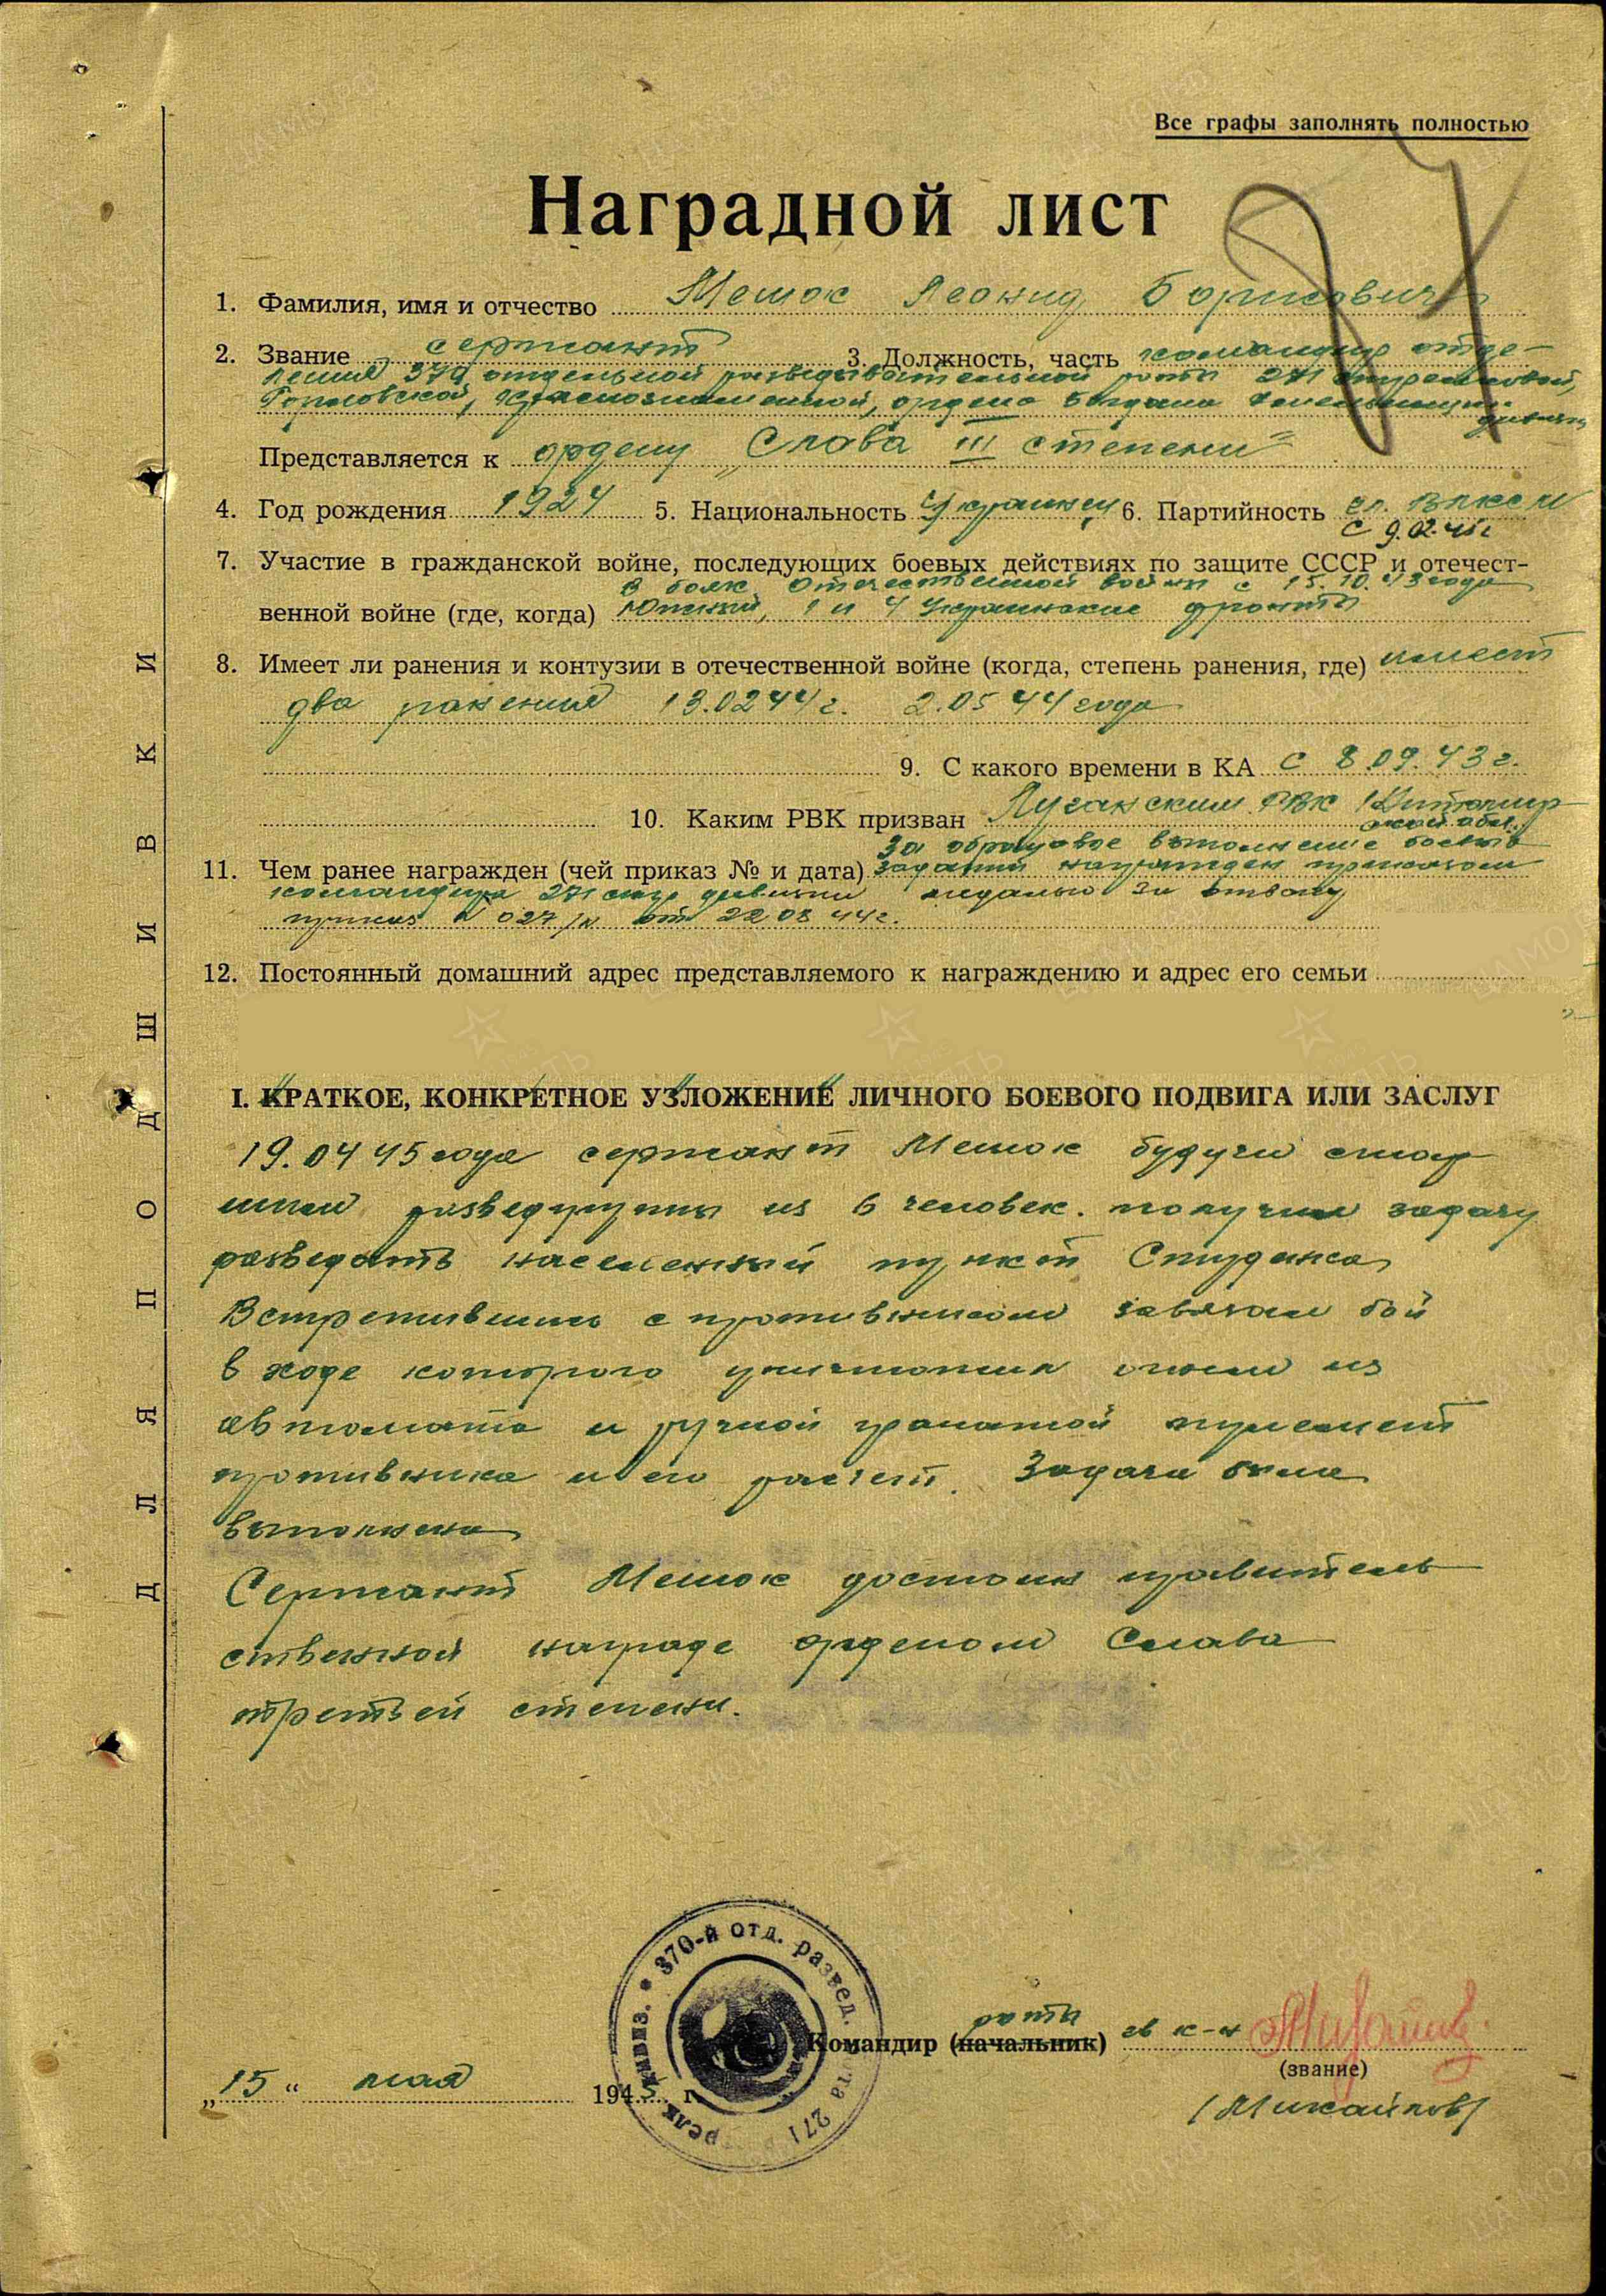 Все графы заполнять полностью
Наградной лист
1. Фамилия, имя и отчество Мешок Леонид Борисович
2. Звание сержант 3. Должность, часть командир отде-
ления 370 отдельной разведывательной роты 271 стрелковой,
Горловской, Краснознаменной, ордена Богдана Хмельницкого
дивизии
Представляется к ордену „Слава III степени"
4. Год рождения 1924 5. Национальность Украинец 6. Партийность чл. ВЛКСМ
с 9.02.45г
7. Участие в гражданской войне, последующих боевых действиях по защите СССР и отечест-
В боях Отечественной войны с 15.10.43 года
венной войне (где, когда) Южный, 1 и 4 Украинские фронты
8. Имеет ли ранения и контузии в отечественной войне (когда, степень ранения, где) имеет
два ранения 13.02 44 г. 2.05 44 года
9. С какого времени в КА с 8.09.43 г.
10. Каким РВК призван Луганским РВК Житомир
ской обл.
За образцовое выполнение боевых
11. Чем ранее награжден (чей приказ № и дата) заданий награжден приказом
командира 271 стр дивизии медалью за отвагу
приказ № 027/н от 22 08 44 г.
12. Постоянный домашний адрес представляемого к награждению и адрес его семьи
I. КРАТКОЕ, КОНКРЕТНОЕ УЗЛОЖЕНИЕ ЛИЧНОГО БОЕВОГО ПОДВИГА ИЛИ ЗАСЛУГ
19.04 45 года сержант Мешок будучи стар
шим разведгруппы из 6 человек. получил задачу
разведать населенный пункт Студенка
Встретившись с противником завязал бой
в ходе которого уничтожил огнем из
автомата и ручной гранатой пулемет
противника и его расчет. Задача была
выполнена
Сержант Мешок достоин правитель
ственной награде орденом Слава
третьей степени.
370-й отд. развед. рота 271 стрелк. дивиз.
роты
Командир (начальник) гв к-н
(звание)
/Михайлов/
„15" мая 1945 г.
ДЛЯ ПОДШИВКИ